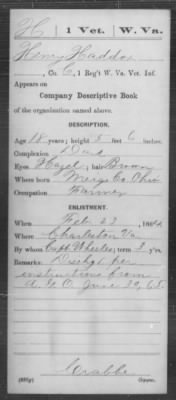 H | 1 Vet. | W. Va.
Henry Haddox
, Co. C, 1 Reg't W. Va. Vet. Inf.
Appears on
Company Descriptive Book
of the organization named above.
DESCRIPTION.
Age 18 years; height 5 feet 6 inches.
Complexion Dark
Eyes Hazel; hair Brown
Where born Meigs Co. Ohio
Occupation Farmer
ENLISTMENT.
When Feb. 23, 1864.
Where Charleston Va
By whom Capt Wheeler; term 3 y'rs.
Remarks: Dischgd per
instructions from
A. G. O. June 29, 65
Crabbe
Copyist.